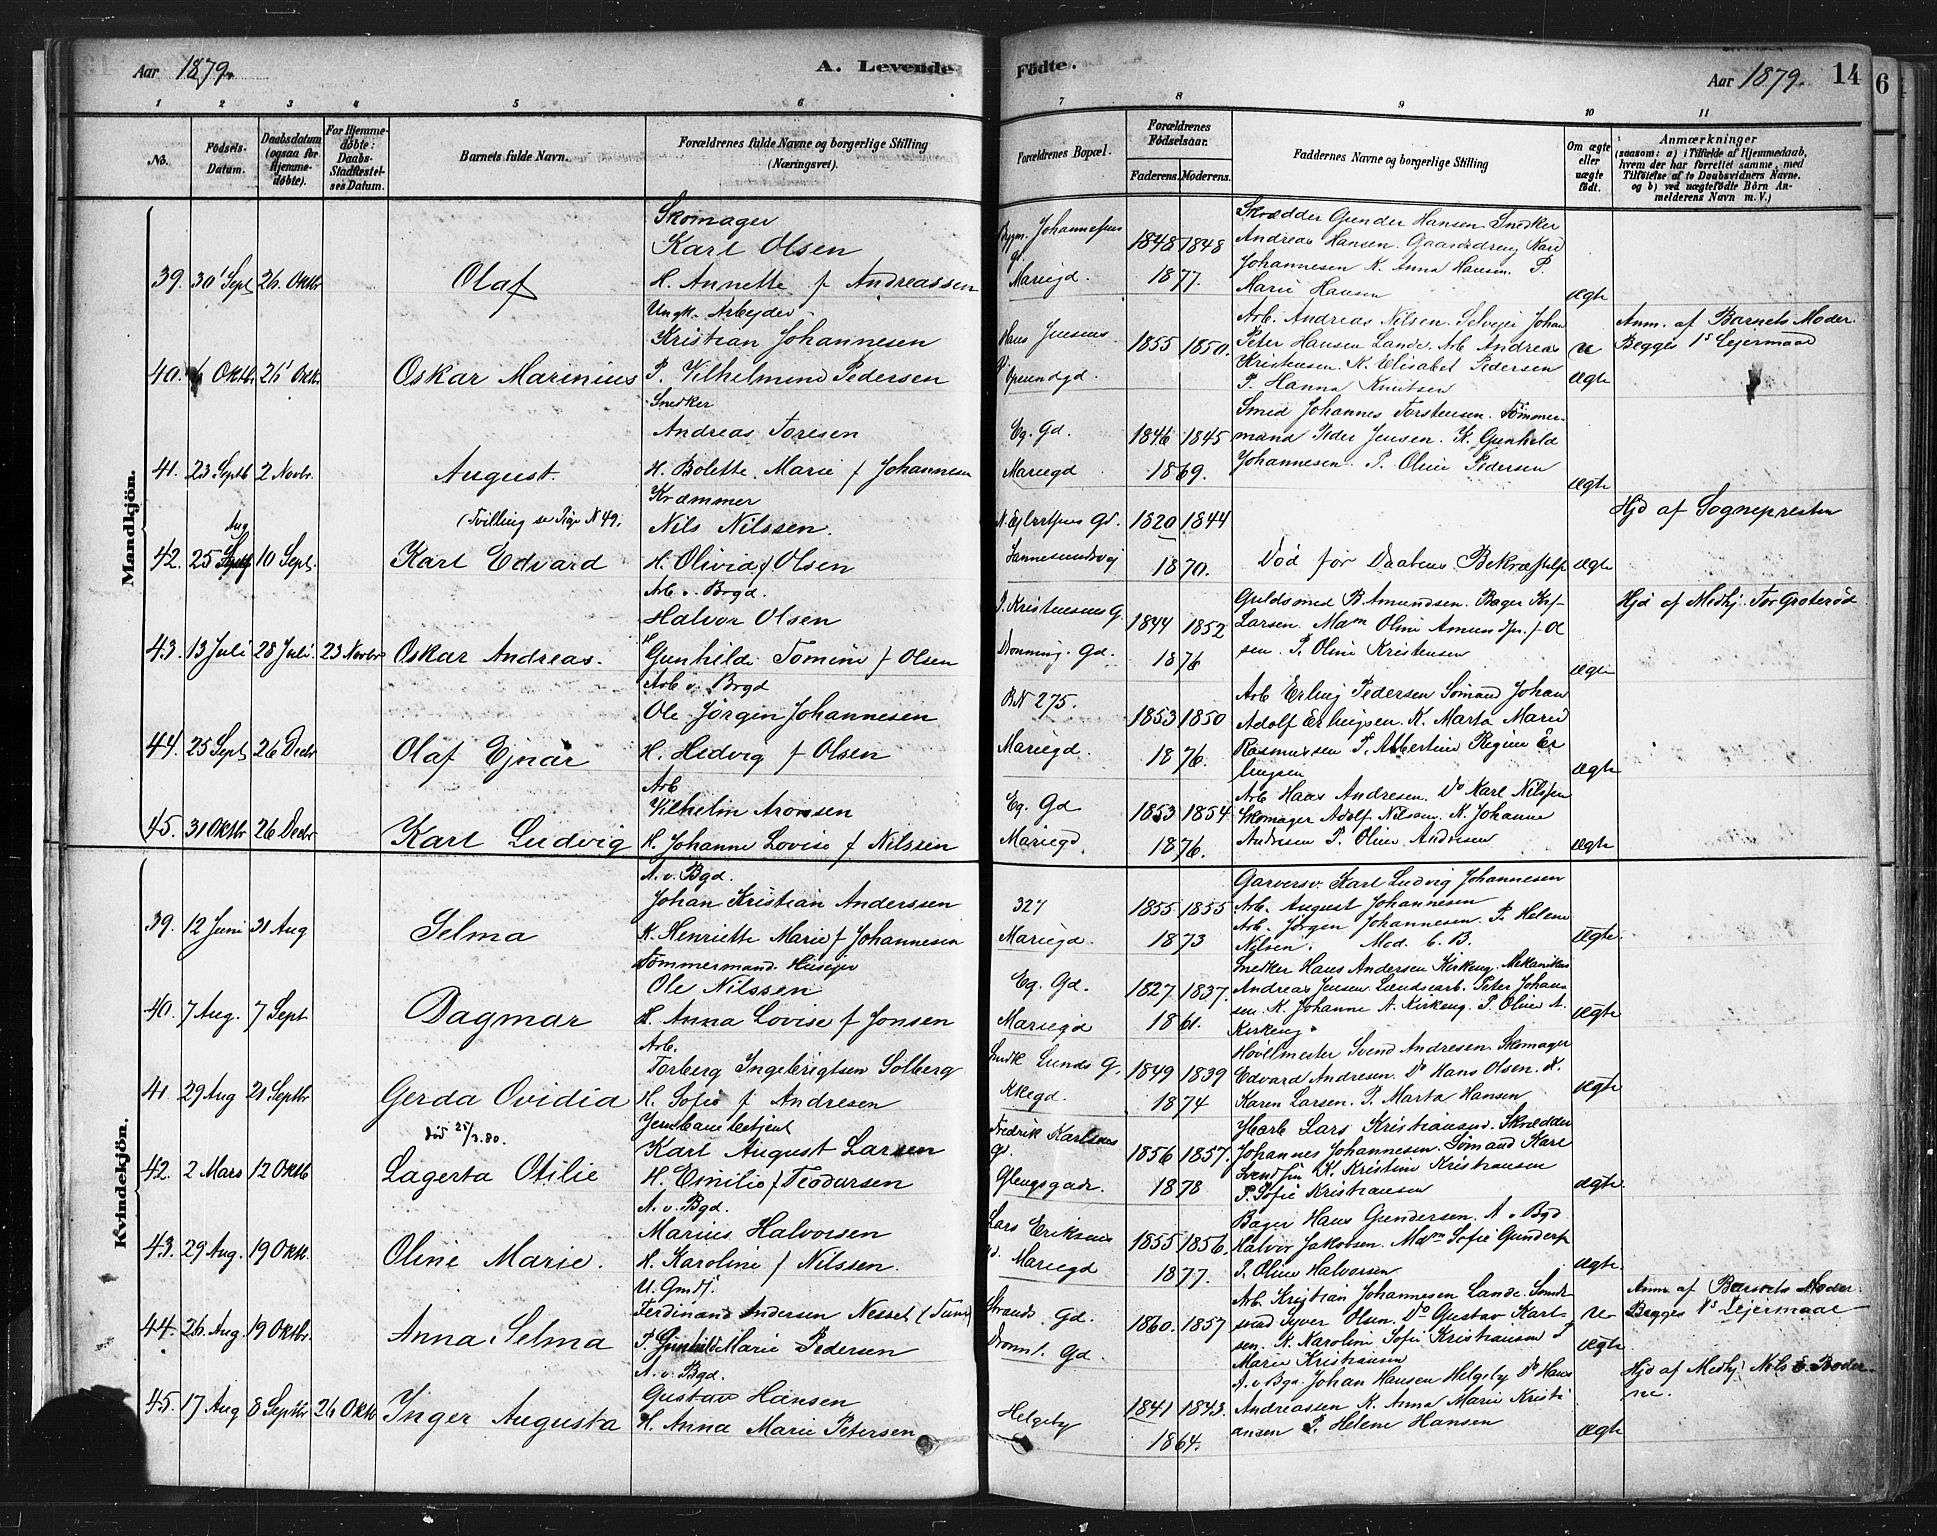 Aar 1879.
A. Levende Fødte.
Aar 1879. 14
6
1 2 3 4 5 6 7 8 9 10 11
No.
Fødsels-Datum.
Daabsdatum (ogsaa for Hjemme-døbte).
For Hjemme-døbte: Daabs-Stadfæstel-ses Datum.
Barnets fulde Navn.
Forældrenes fulde Navne og borgerlige Stilling (Næringsvei).
Forældrenes Bopæl.
Forældrenes Fødselsaar.
Faderens. Moderens.
Faddernes Navne og borgerlige Stilling
Om ægte eller uægte født.
Anmærkninger
(saasom: a) i Tilfælde af Hjemmedaab, hvem der har forrettet samme, med Tilføielse af to Daabsvidners Navne. og b) ved uægtefødte Børn An-melderens Navn m. V.)
Mandkjøn.
Skomager
Karl Olsen
39. 30' Sept 26. Oktbr Olaf H. Annette f Andreassen
Johannesens
Mariegd.
1848 1848
1877.
Skrædder Gunder Hansen Snedker
Andreas Hansen. Gaardsdreng Karl
Johannesen K. Anna Hansen. P.
Marie Hansen
ægte
Ungk. Arbeyder
Kristian Johannesen
40. 6 Oktbr. 26' Okt. Oskar Marinius P. Vilhelmine Pedersen
Hans Jensens
Grundgd.
1855 1850.
Arb. Andreas Nilsen. Selveier Johan
Peter Hansen Lande. Arb Andreas
Kristensen. K. Elisabet Pedersen
P. Hanna Knutsen
u
ægte
Anm. af Barnets Moder.
Begges 1s Lejermaal
Snedker
Andreas Toresen
41. 23 Septb 2 Novbr. August. H. Bolette Marie f Johannesen
Eg. Gd.
Mariegd
1846 1845
1869.
Smed Johannes Torstensen. Tømmer-
mand Peder Jensen. K. Gunhild
Johannesen. P. Oline Pedersen
ægte
Kræmmer
(Tvilling se Pige N 49.
Nils Nilssen.
Aug
42. 25 Sept 10 Sept. Karl Edvard H. Olivia f Olsen
1820 1844
1870.
Død før Daabens Bekræftelse
ægte
Hjd af Sognepresten
Arb. v. Brgd.
Halvor Olsen
43. 13 Juli 28 Juli. 23 Novbr Oskar Andreas. H Gunhilde Tomine f Olsen
P. Kristensens G.
Dronning. Gd.
1844 1852
1876
Guldsmed B. Amundsen. Bager Krf-
Larsen. Mam Oline Amundsn. f Ol
sen. P. Oline Kristensen
ægte
Hjd af Medhj. Tor Groterød
Arb v. Brgd
Ole Jørgen Johannesen
44. 25 Sept 26 Decbr Olaf Ejnar H. Hedvig f Olsen
BN 275.
Mariegd.
1853 1850
1876.
Arb Erling Pedersen Sømand Johan
Adolf Erlingsen. K. Marta Marie
Rasmussen P. Albertine Regine Er
lingsen
ægte
Arb
Vilhelm Aronsen
45. 31 Oktbr 26 Decbr Karl Ludvig H. Johanne Lovise f Nilssen
Eg. Gd
Mariegd.
1853 1854
1876.
Arb Hans Andresen. Do Karl Nilssen
Skomager Adolf Nilsen. K. Johanne
Andresen P. Oline Andresen
ægte
Kvindekjön.
A. v. Bgd.
Johan Kristian Anderssen
39. 12 Juni 31 Aug Selma K. Henriette Marie f Johannesen
327
Mariegd.
1855 1855
1873
Garversv. Karl Ludvig Johannesen
Arb. August Johannesen
Arb. Jørgen Johannesen. P. Helene
Nilsen. Mod. t. B.
Ægte.
Tømmermand. Huseier
Ole Nilssen
40. 7 Aug. 7 Sept Dagmar H. Anna Lovise f Jonsen
Eg. Gd.
Mariegd
1827 1837.
1861.
Snedker Hans Andersen Kirkeng. Mekanikus
Andreas Jensen. Landsearb. Peter Johan
sen. K. Johanne A. Kirkeng. P. Oline A.
Kirkeng
ægte
Arb.
Torberg Ingebrigtsen Solberg
41. 29 Aug 21 Septbr Gerda Ovidia H. Sofie f Andresen
Lunds G.
Kkegd.
1849 1839
1874
Høvelmester Svend Andresen. Skomager
Edvard Andresen. Do Hans Olsen. K.
Karen Larsen. P. Marta Hansen
ægte
død 25/3.80.
Jernbanebetjent
Karl August Larsen
42. 2 Mars 12 Oktb Lagerta Otilie H. Emilie f Teodorsen
Fredrik Karlsens
gd.
Glengsgade.
1856 1857.
1878
Lars Kristiansen. Skrædder
Johannes Johannesen. Sømand Karl
Svendsen K. Kristine Kristiansen
P. Sofie Kristiansen
ægte
A. v. Bgd.
Marius Halvorsen
43. 29 Aug. 19 Oktb. Oline Marie. H. Karoline f Nilssen.
Lars Eriksens
gd. Mariegd
1855 1856.
1877.
Bager Hans Gundersen. A v Bgd
Halvor Jakobsen. Mam Sofie Gunders
P. Oline Halvorsen
ægte
U. Gmdf.
Ferdinand Andersen Nesset (Tune)
44. 26 Aug 19 Oktbr. Anna Selma P. Gunhild Marie Pedersen
Strands. Gd.
Dronn. Gd.
1860. 1857
Arb. Kristian Johannesen Lande. Sønde-
Syver Olsen. Do Gustav Karl-
sen. K. Karoline Sofie Kristiansen P
Marie Kristiansen
u-
ægte
Anm af Barnets Moder.
Begges 1s Lejermaal
A. v. Bgd.
Gustav Hansen
45. 17 Aug 8 Septbr 26 Oktb Inger Augusta H. Anna Marie Petersen
Helgeby
1841 1843.
1864.
A. v Bgd. Johan Hansen Helgeby Do Hans
Andreassen K. Anna Marie Kristi
ansen P. Helene Hansen
ægte
Hjd af Medhj. Nils E. Boder-
ne.